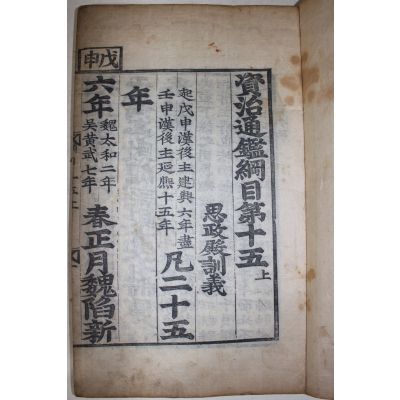 資治通鑑綱目第十五上
思政殿訓義
起戊申漢後主建興六年盡
壬申漢後主延熙十五年
凡二十五
年
戊申
六年
魏太和二年
吳黃武七年
春正月魏陷新